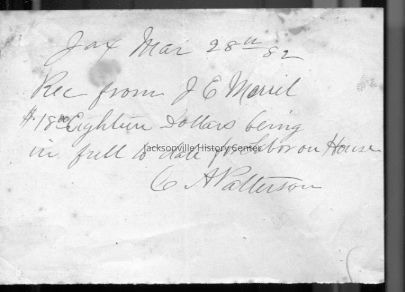 Jax Mar 28th 82
Rec from J E Merril
$18.00 Eighteen Dollars being
in full to date for labor on House
C A Patterson
Jacksonville History Center